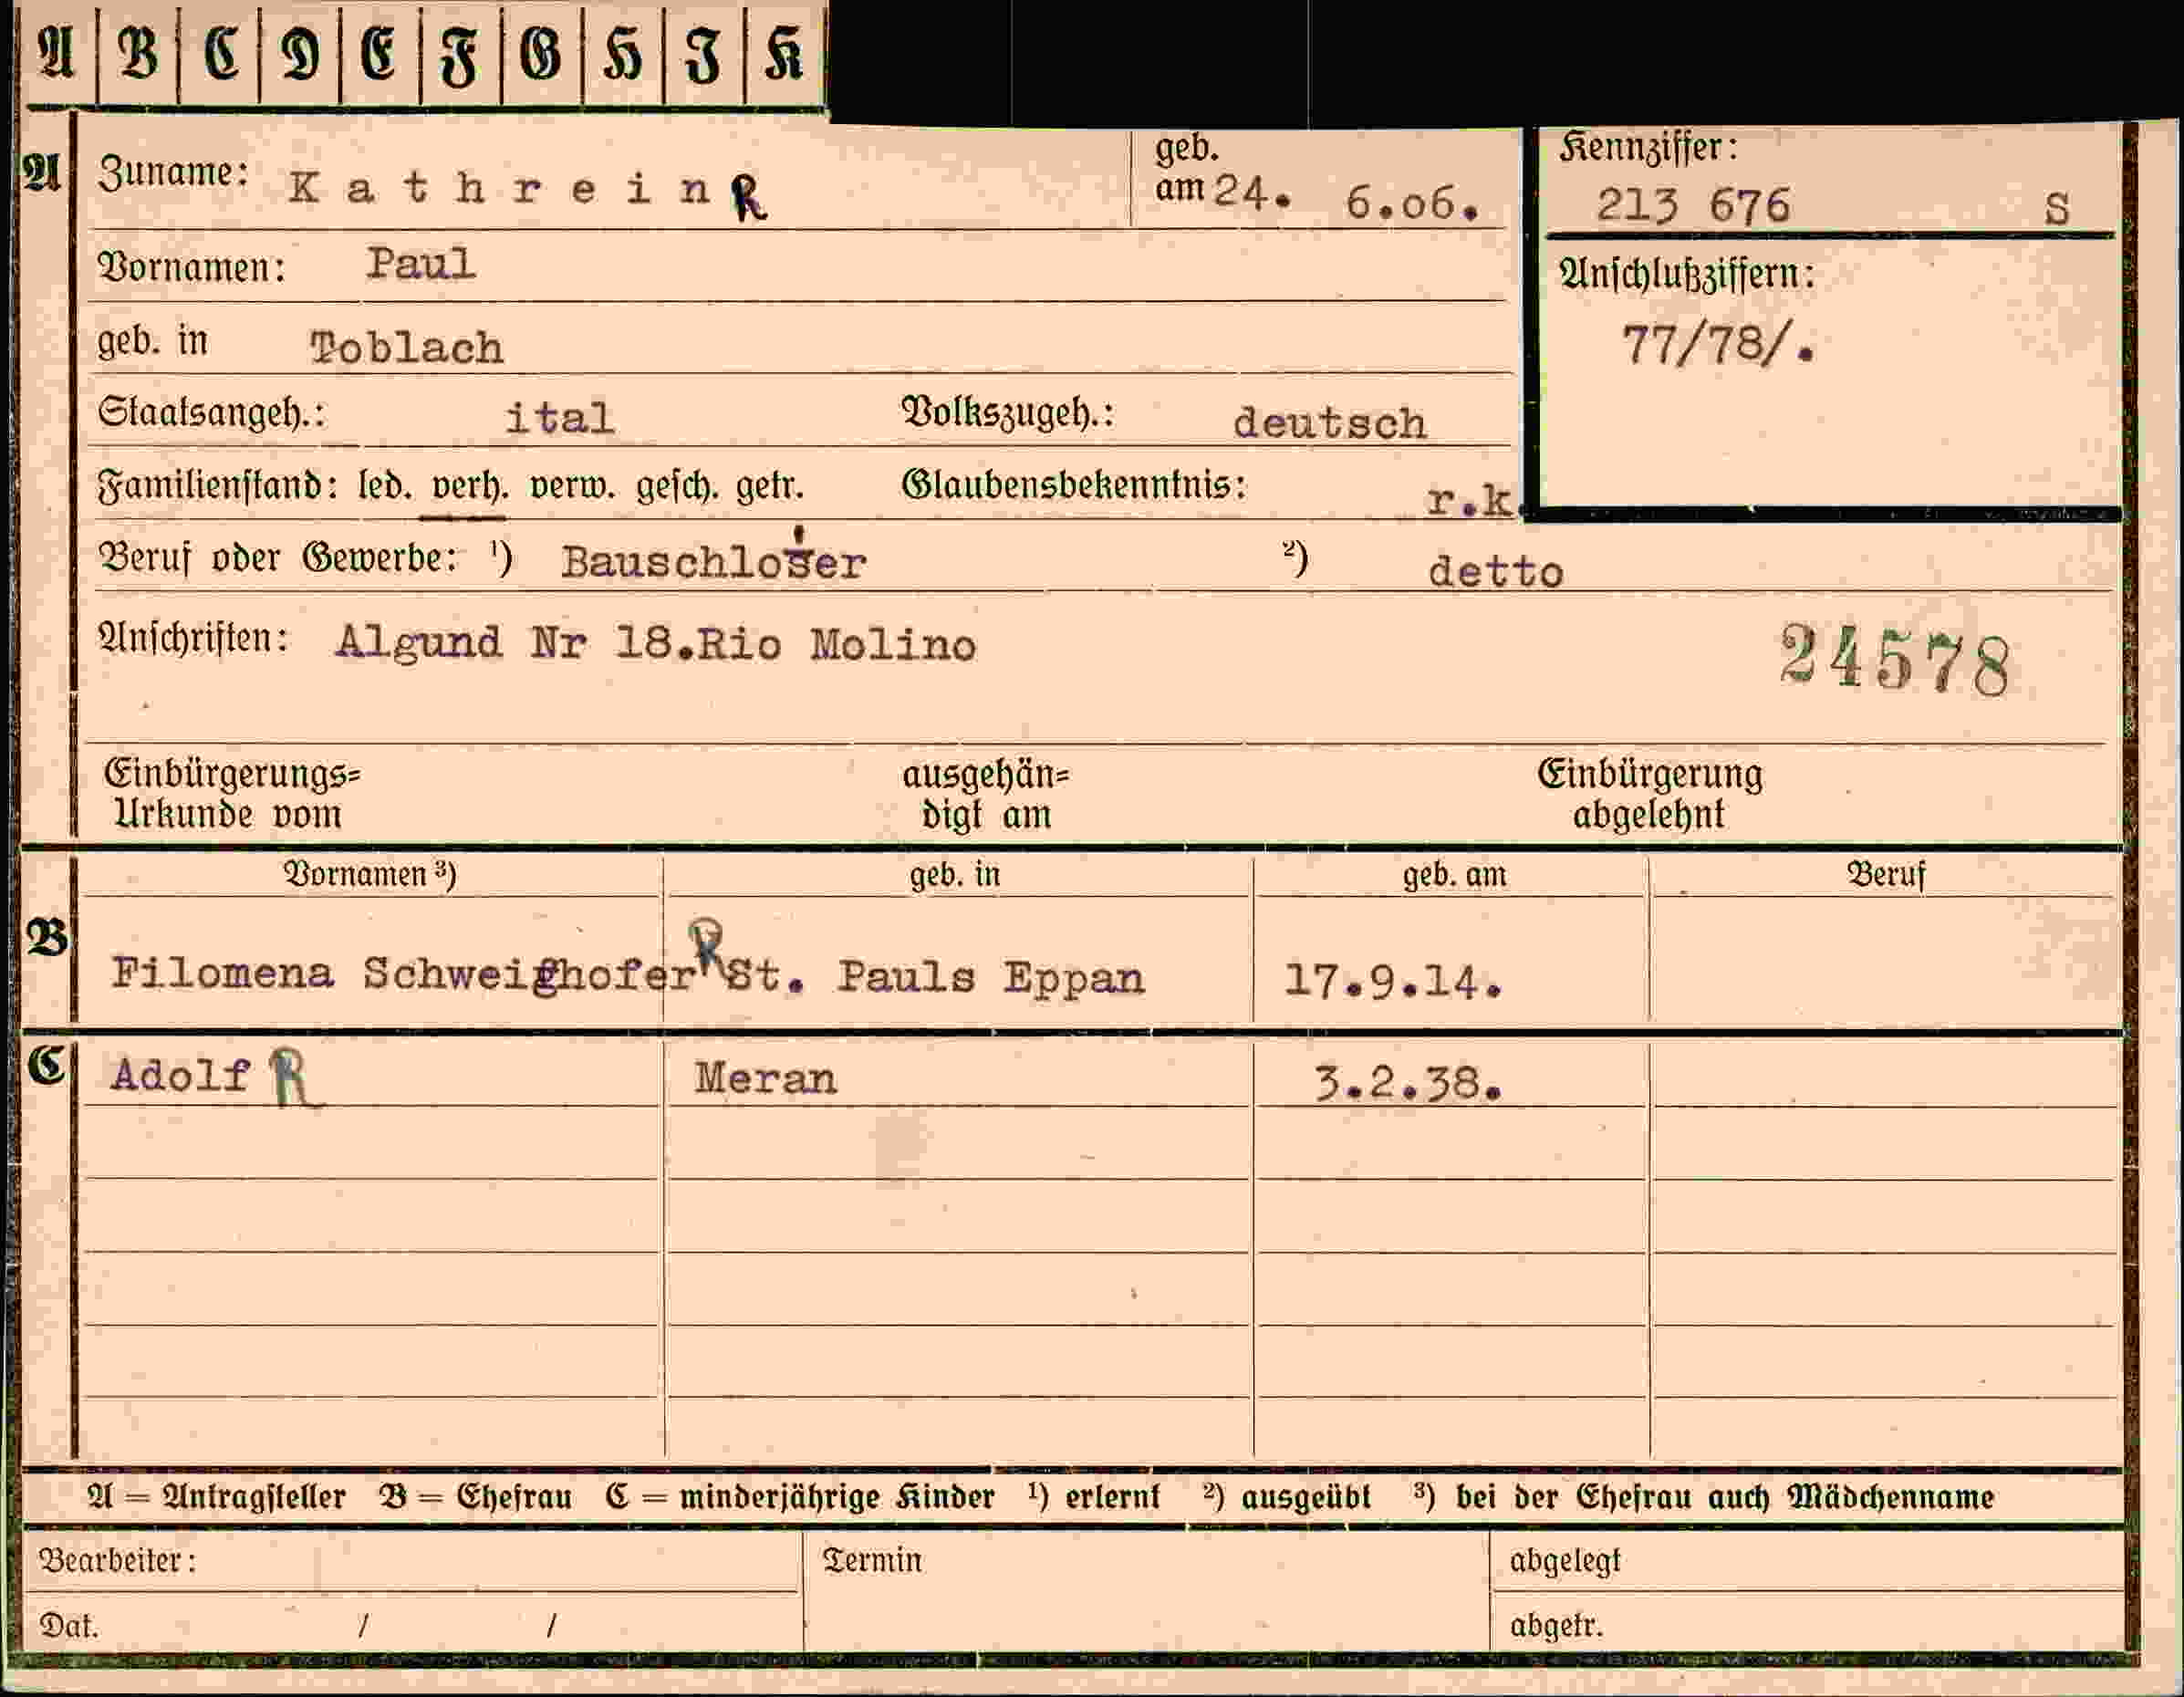 A B C D E F G H I K
A Zuname: Kathrein R geb. am 24. 6.06. Kennziffer: 213 676 S
Vornamen: Paul
geb. in Toblach
Anschlußziffern: 77/78/.
Staatsangeh.: ital Volkszugeh.: deutsch
Familienstand: led. verh. verw. gesch. getr. Glaubensbekenntnis: r.k.
Beruf oder Gewerbe: ¹) Bauschloser ²) detto
Anschriften: Algund Nr 18.Rio Molino 24578
Einbürgerungs= ausgehän= Einbürgerung
Urkunde vom digt am abgelehnt
Vornamen ³) geb. in geb. am Beruf
B Filomena Schweighofer R St. Pauls Eppan 17.9.14.
C Adolf R Meran 3.2.38.
A = Antragsteller B = Ehefrau C = minderjährige Kinder ¹) erlernt ²) ausgeübt ³) bei der Ehefrau auch Mädchenname
Bearbeiter: Termin abgelegt
Dat. / / abgetr.